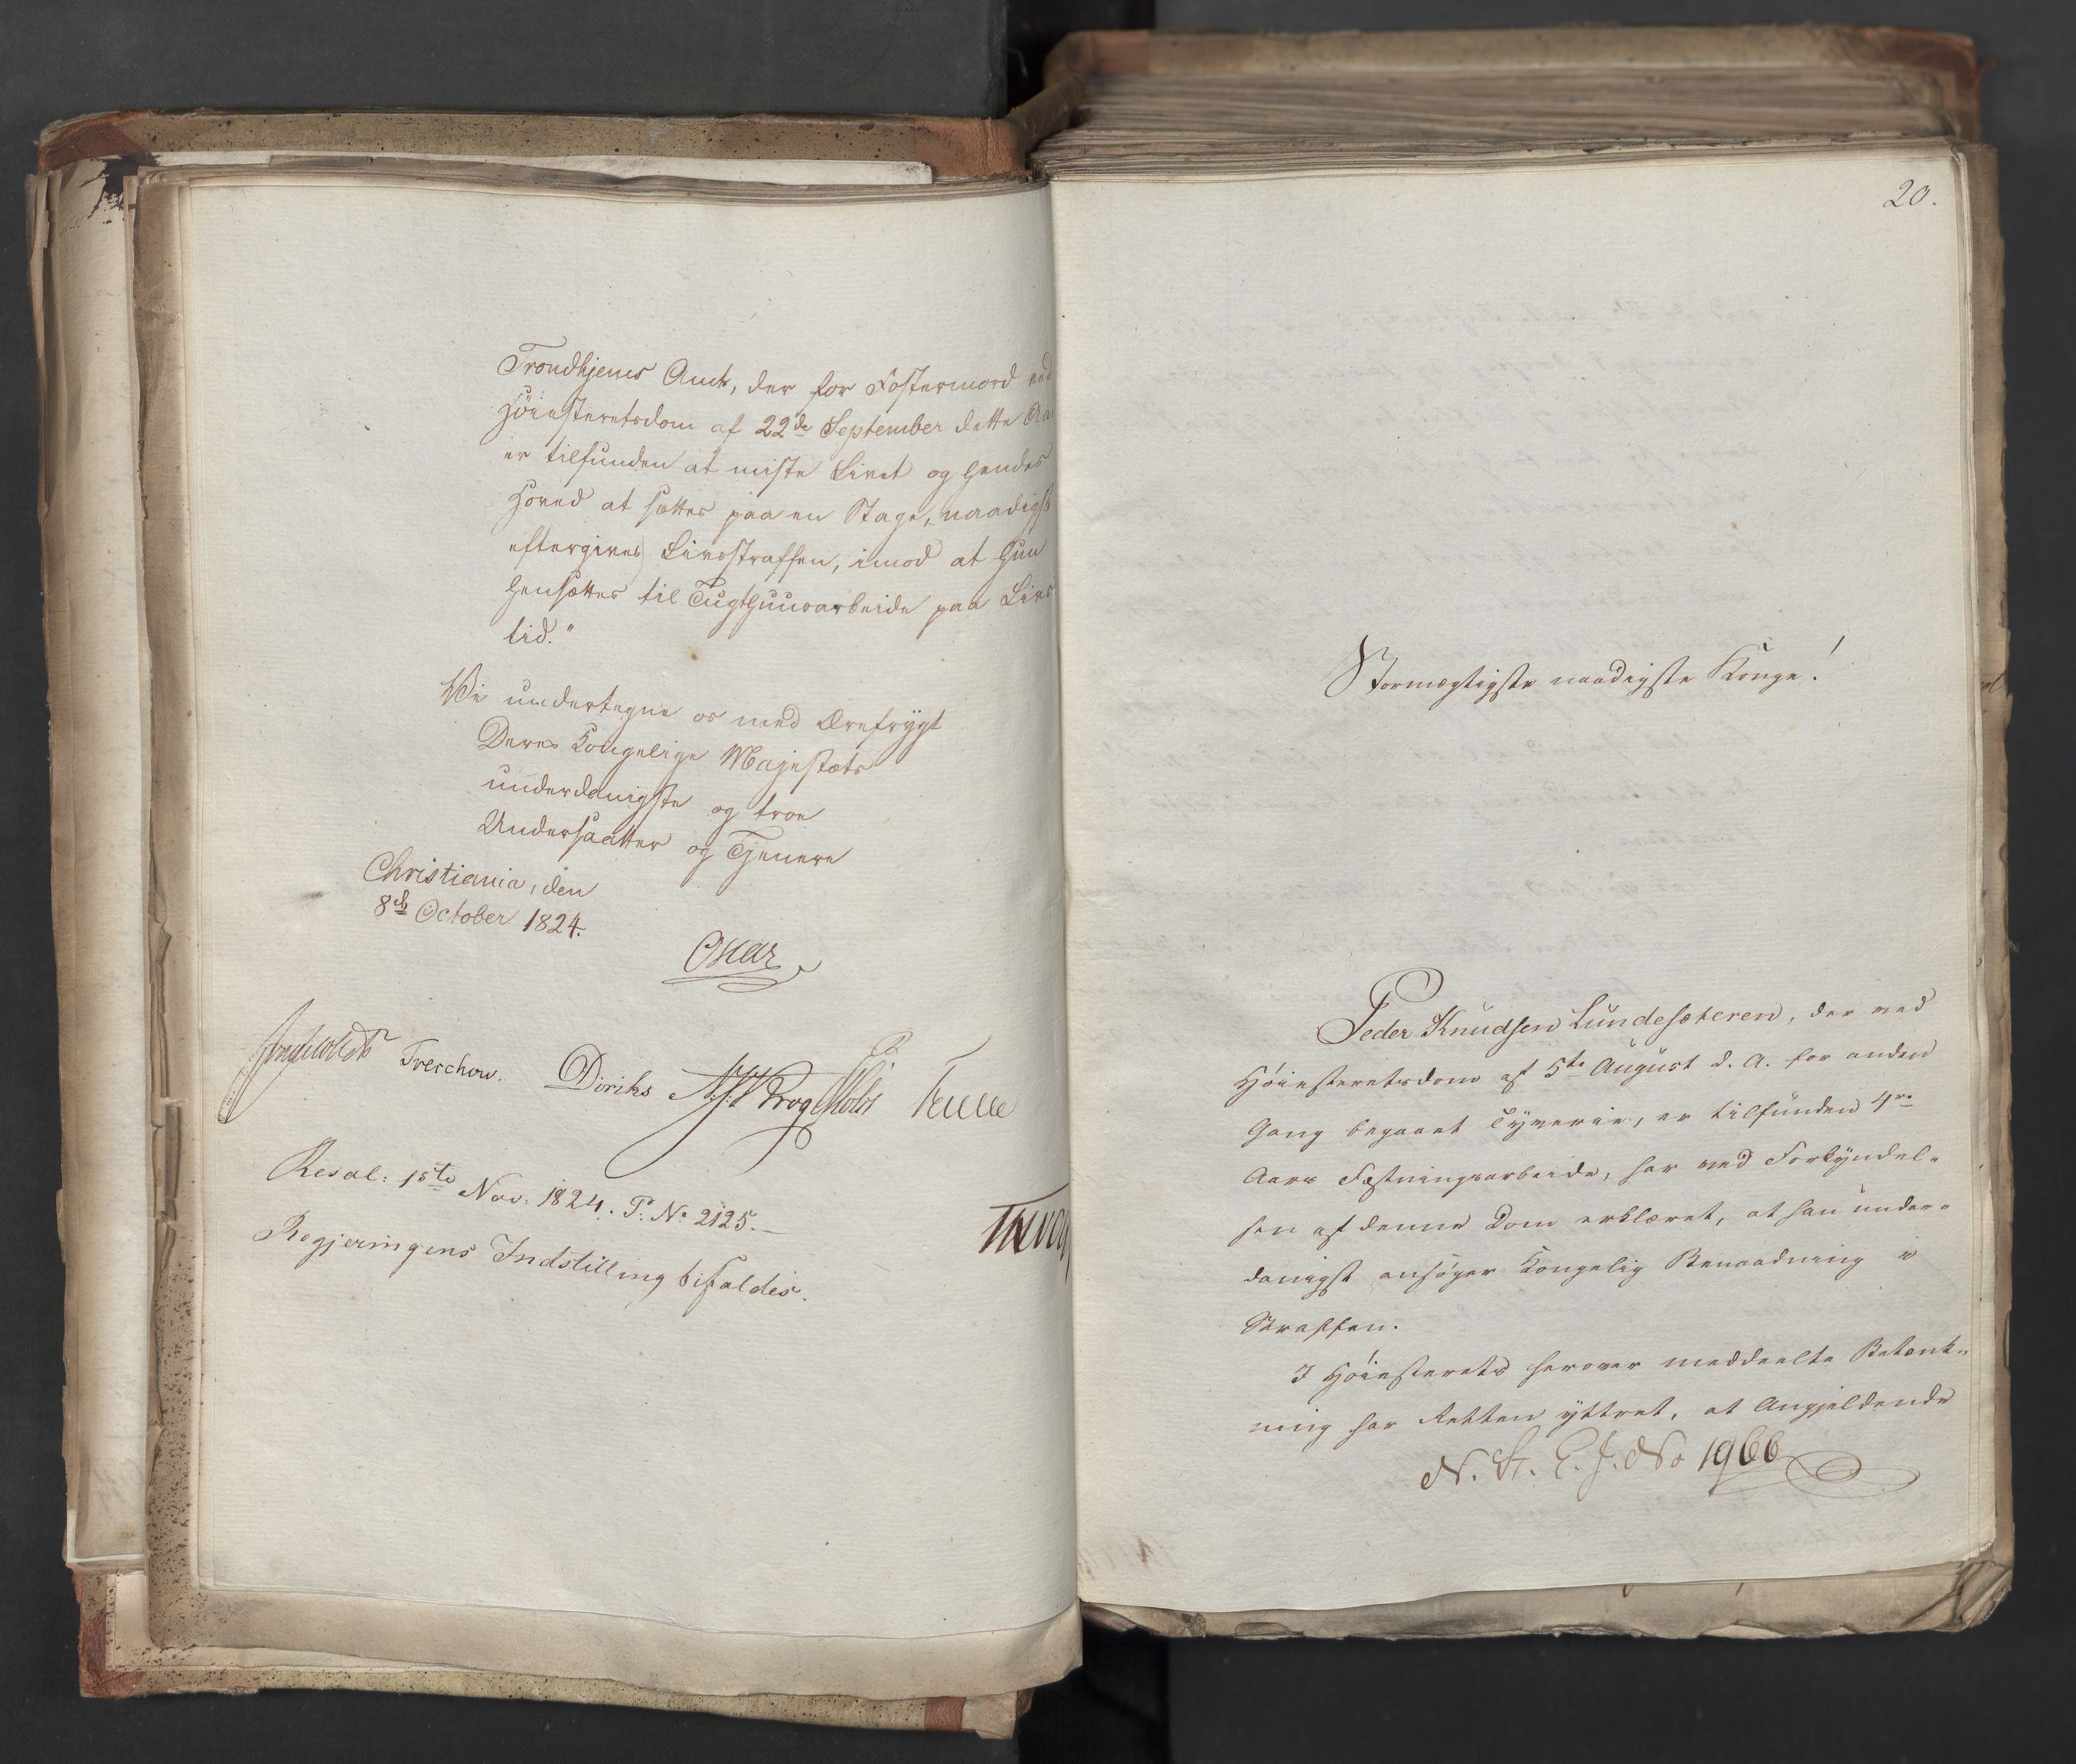 Trondhjems Amt, der for Fostermord ved
Höiesteretsdom af 22de September dette Aar
er tilfunden at miste Livet og hendes
Hoved at sættes paa en Stage, naadigst
eftergives Livsstraffen, imod at hun
hensættes til Tugthuusarbeide paa Livs
tid."
Vi undertegne os med Ærefrygt
Deres Kongelige Majestæts
underdanigste og troe
Undersaatter og Tjenere
Christiania, den
8de October 1824.
Oscar
Treschow. Diriks
Resol: 1ste Nov. 1824. P. No 2125.—
Regjeringens Indstilling bifaldes.
20.
Stormægtigste naadigste Konge!
Peder Knudsen Lundesæteren, der ved
Høiesteretsdom af 5te August d. A. for anden
Gang begaaet Tyverie, er tilfunden 4re
Aars Fæstningsarbeide, har ved Forkyndel-
sen af denne Dom erklæret, at han under-
danigst ansøger Kongelig Benaadning i
Straffen.
I Høiesterets herover meddeelte Betænk-
ning har Retten yttret, at Angjeldende
N. St. E. J. No 1966